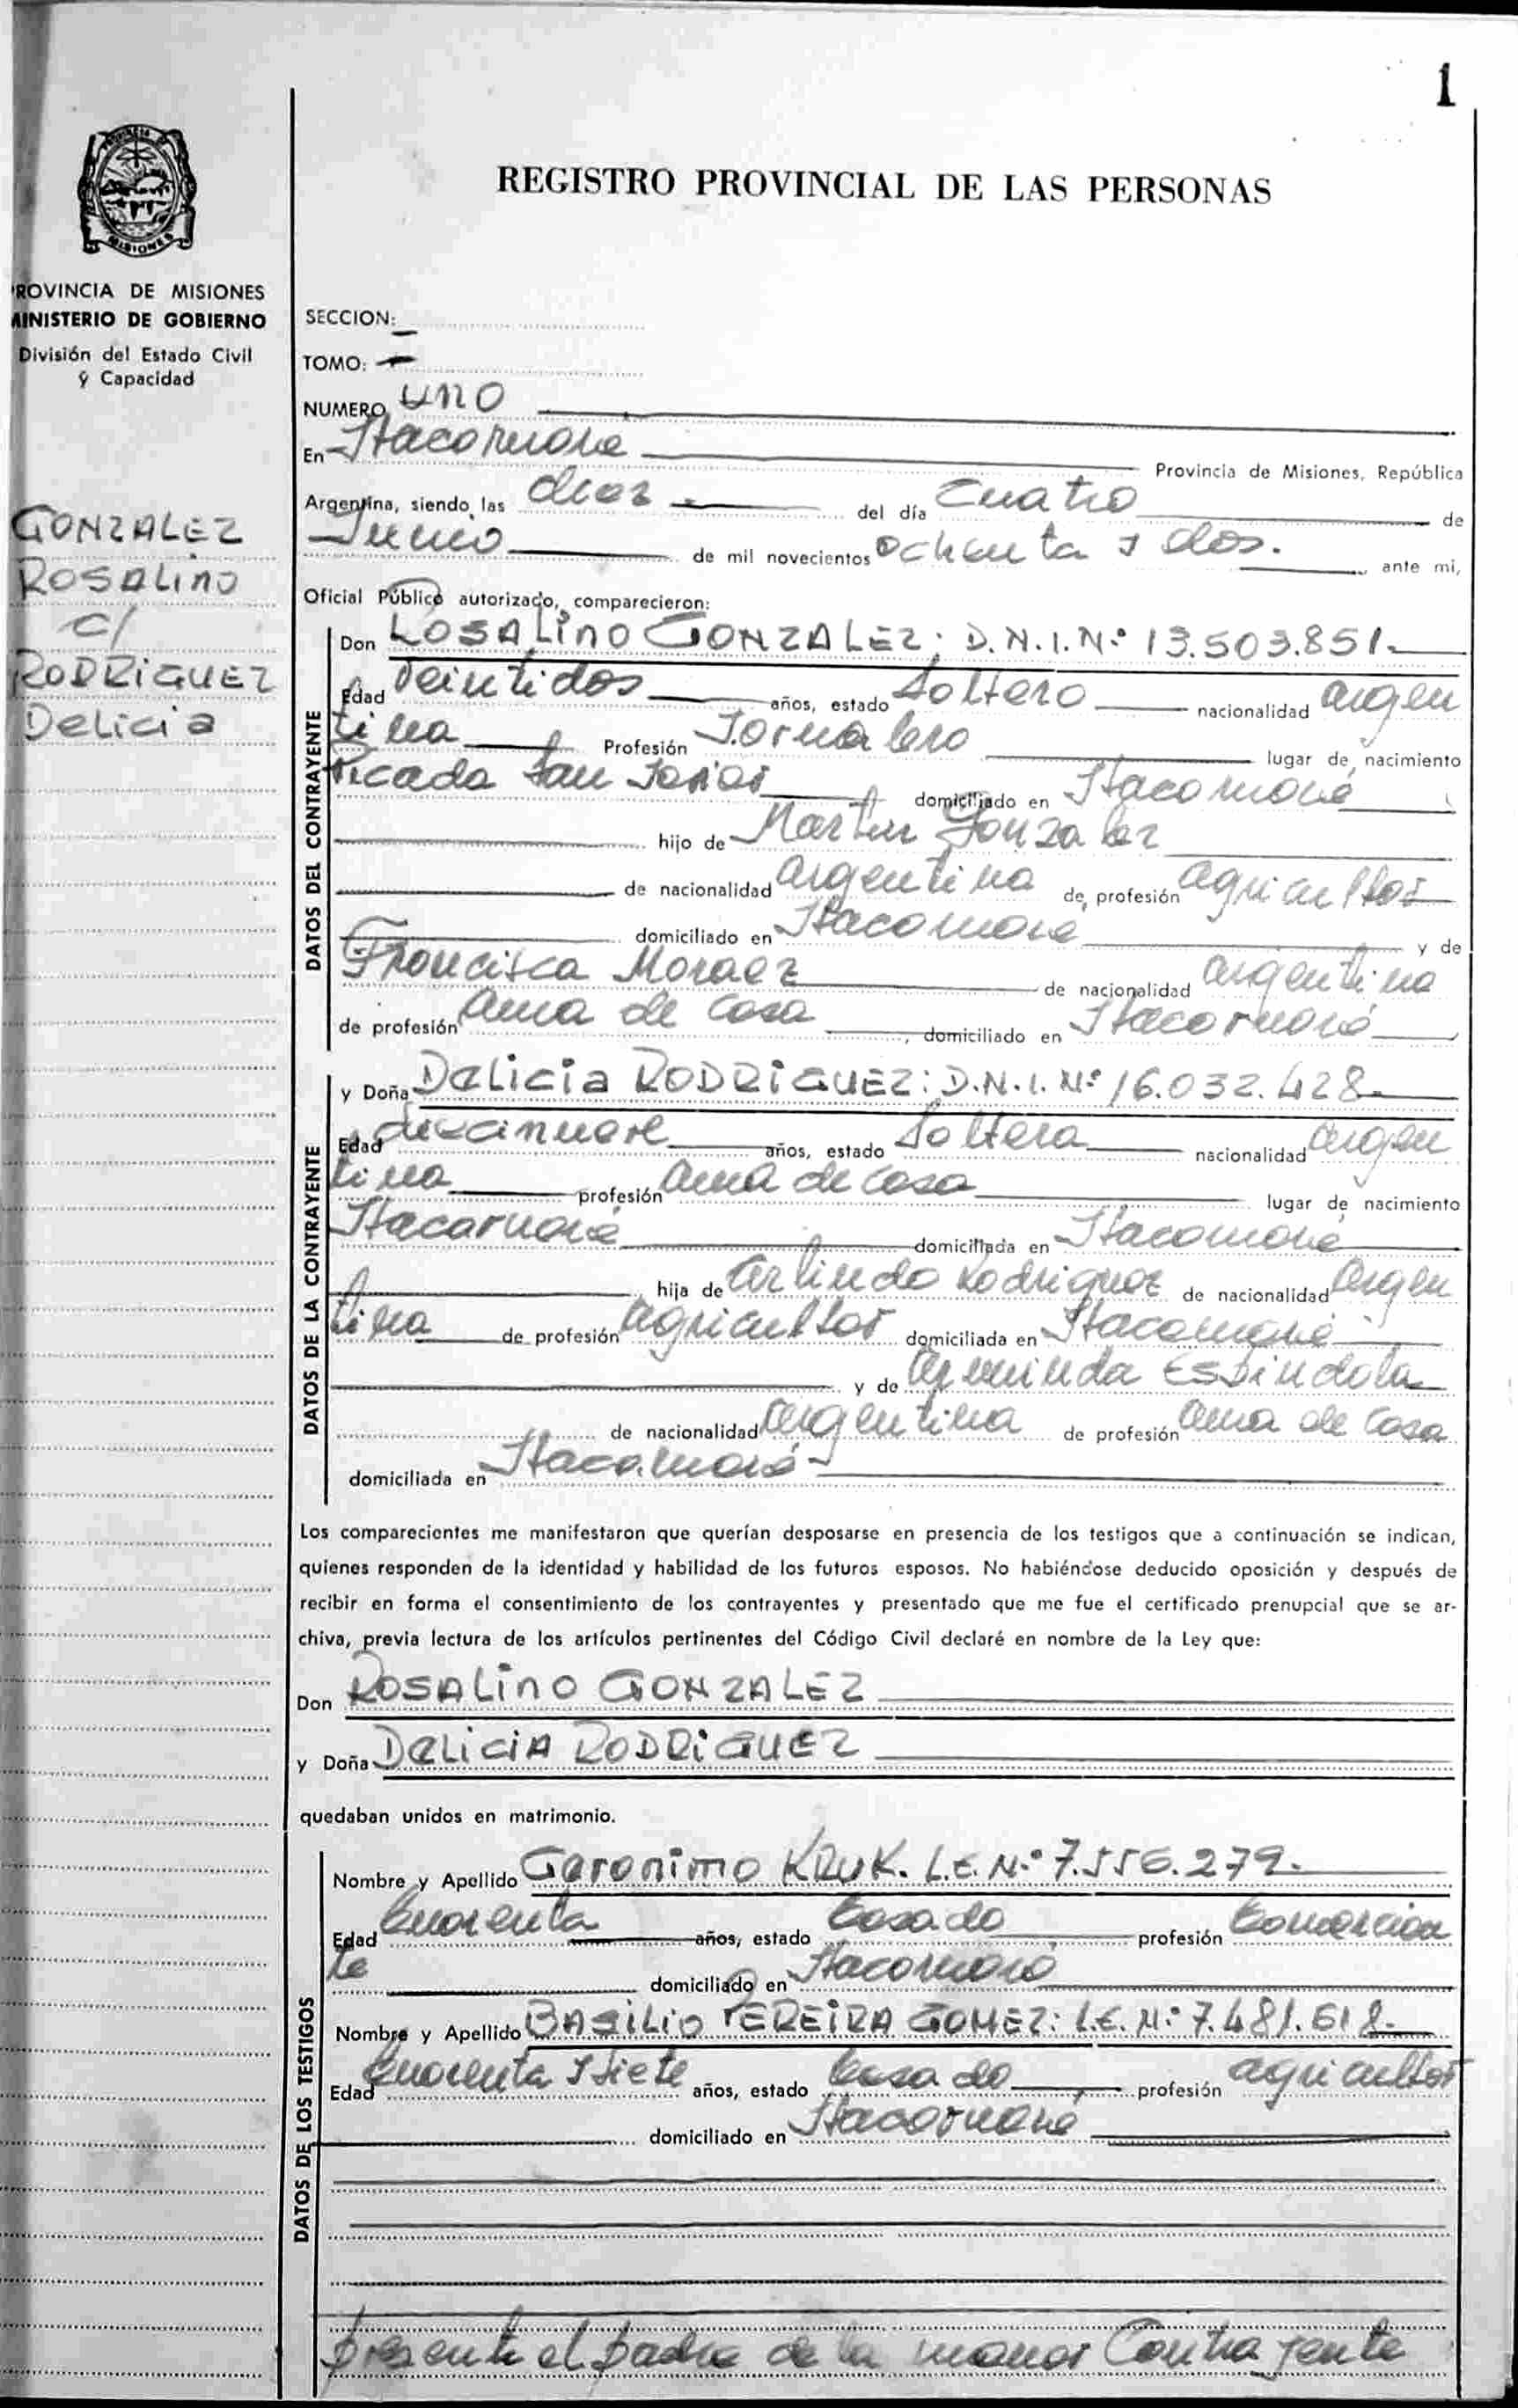 1
PROVINCIA DE
MISIONES
REGISTRO PROVINCIAL DE LAS PERSONAS
ROVINCIA DE MISIONES
MINISTERIO DE GOBIERNO
División del Estado Civil
y Capacidad
GONZALEZ
ROSALINO
c/
RODRIGUEZ
Delicia
SECCION: –
TOMO: –
NUMERO uno
En Itacaruaré Provincia de Misiones, República
Argentina, siendo las diez del día Cuatro de
Junio de mil novecientos ochenta y dos. ante mi,
Oficial Público autorizado, comparecieron:
DATOS DEL CONTRAYENTE
Don ROSALINO GONZALEZ: D.N.I.Nº 13.503.851.
Edad Veintidos años, estado Soltero nacionalidad argen
tina Profesión Jornalero lugar de nacimiento
Picada San Javier domiciliado en Itacaruaré
hijo de Martin Gonzalez
de nacionalidad argentina de profesión agricultor
domiciliado en Itacaruaré y de
Francisca Moraez de nacionalidad argentina
de profesión ama de casa, domiciliado en Itacaruaré
DATOS DE LA CONTRAYENTE
y Doña Delicia RODRIGUEZ: D.N.I. Nº 16.032.428.
Edad diecinueve años, estado Soltera nacionalidad argen
tina profesión ama de casa lugar de nacimiento
Itacaruaré domiciliada en Itacaruaré
hija de Arlindo Rodriguez de nacionalidad argen
tina de profesión agricultor domiciliada en Itacaruaré
y de Arminda Espindola
de nacionalidad argentina de profesión ama de casa
domiciliada en Itacaruaré
Los comparecientes me manifestaron que querían desposarse en presencia de los testigos que a continuación se indican,
quienes responden de la identidad y habilidad de los futuros esposos. No habiéndose deducido oposición y después de
recibir en forma el consentimiento de los contrayentes y presentado que me fue el certificado prenupcial que se ar-
chiva, previa lectura de los artículos pertinentes del Código Civil declaré en nombre de la Ley que:
Don ROSALINO GONZALEZ
y Doña DELICIA RODRIGUEZ
quedaban unidos en matrimonio.
DATOS DE LOS TESTIGOS
Nombre y Apellido Geronimo KRUK. L.E.Nº 7.556.279.
Edad Cuarenta años, estado Casado profesión Comercian
te domiciliado en Itacaruaré
Nombre y Apellido BASILIO PEREIRA GOMEZ: L.E. Nº 7.481.618.
Edad Cuarenta y siete años, estado Casado profesión agricultor
domiciliado en Itacaruaré
presente el padre de la menor Contrayente